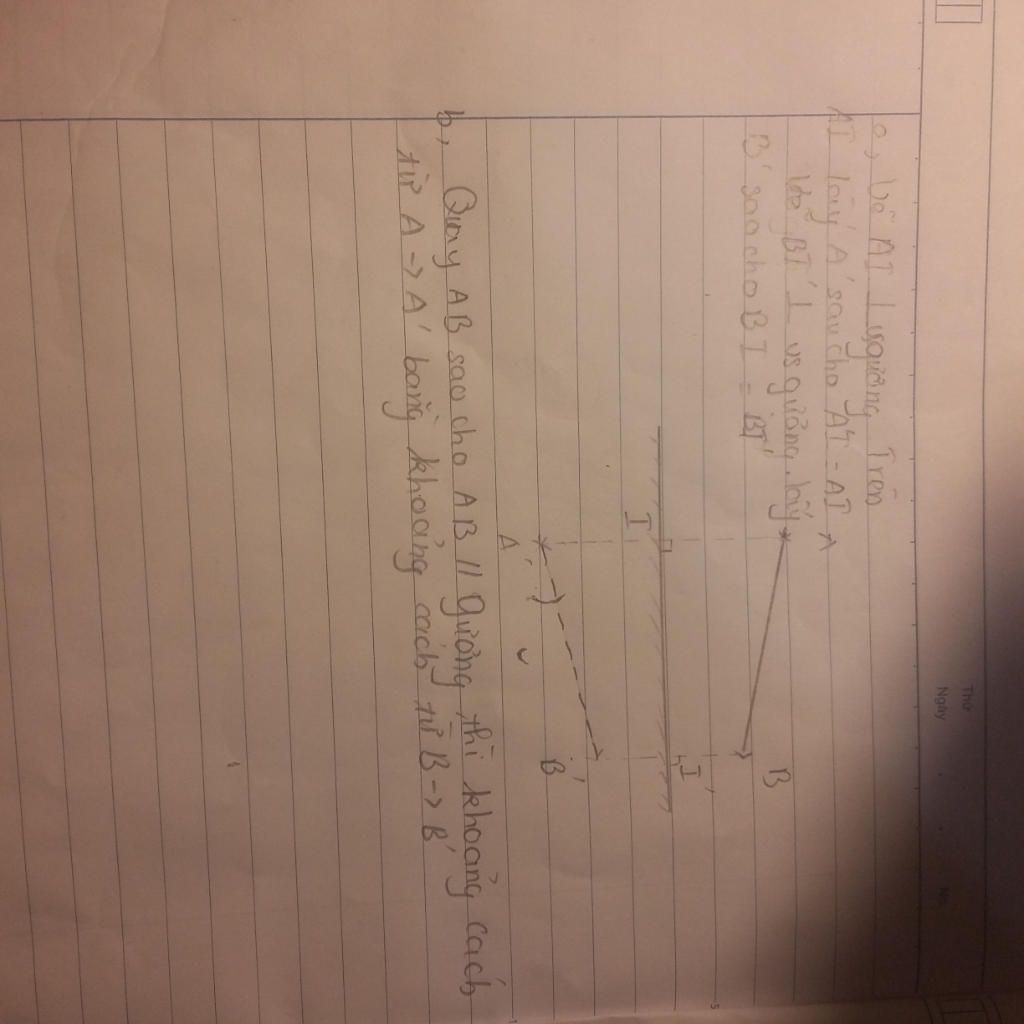 Thứ
Ngày
No.
a, Vẽ AI ⊥ gương Trên
AI lấy A' sao cho A'I = AI
Vẽ BI' ⊥ vs gương, lấy
B' sao cho BI = BI'
A
B
I
I'
A'
B'
b, Quay AB sao cho AB // gương thì khoảng cách
từ A -> A' bằng khoảng cách từ B -> B'